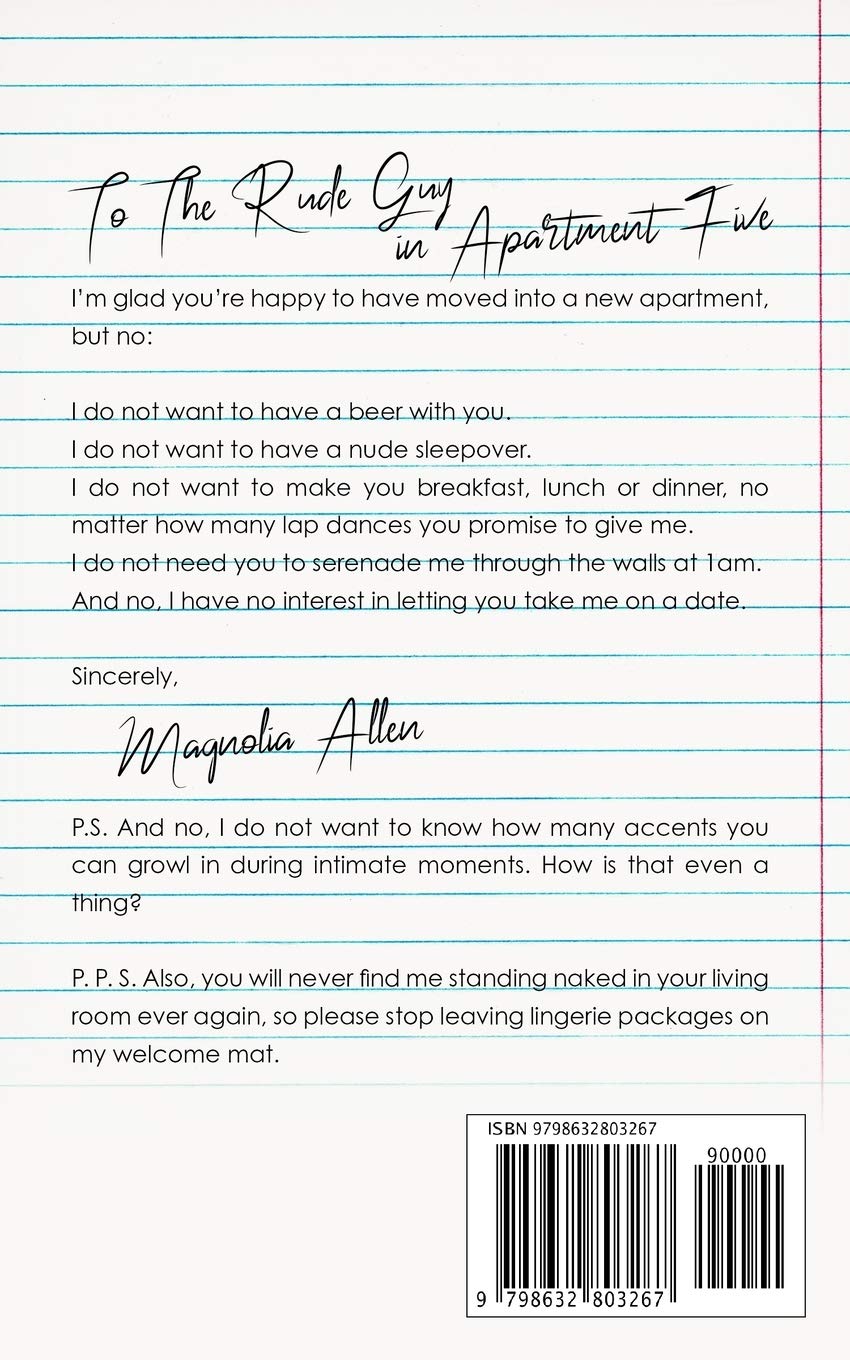 To The Rude Guy
in Apartment Five
I'm glad you're happy to have moved into a new apartment,
but no:
I do not want to have a beer with you.
I do not want to have a nude sleepover.
I do not want to make you breakfast, lunch or dinner, no
matter how many lap dances you promise to give me.
I do not need you to serenade me through the walls at 1am.
And no, I have no interest in letting you take me on a date.
Sincerely,
Magnolia Allen
P.S. And no, I do not want to know how many accents you
can growl in during intimate moments. How is that even a
thing?
P. P. S. Also, you will never find me standing naked in your living
room ever again, so please stop leaving lingerie packages on
my welcome mat.
ISBN 9798632803267
90000
9 798632 803267